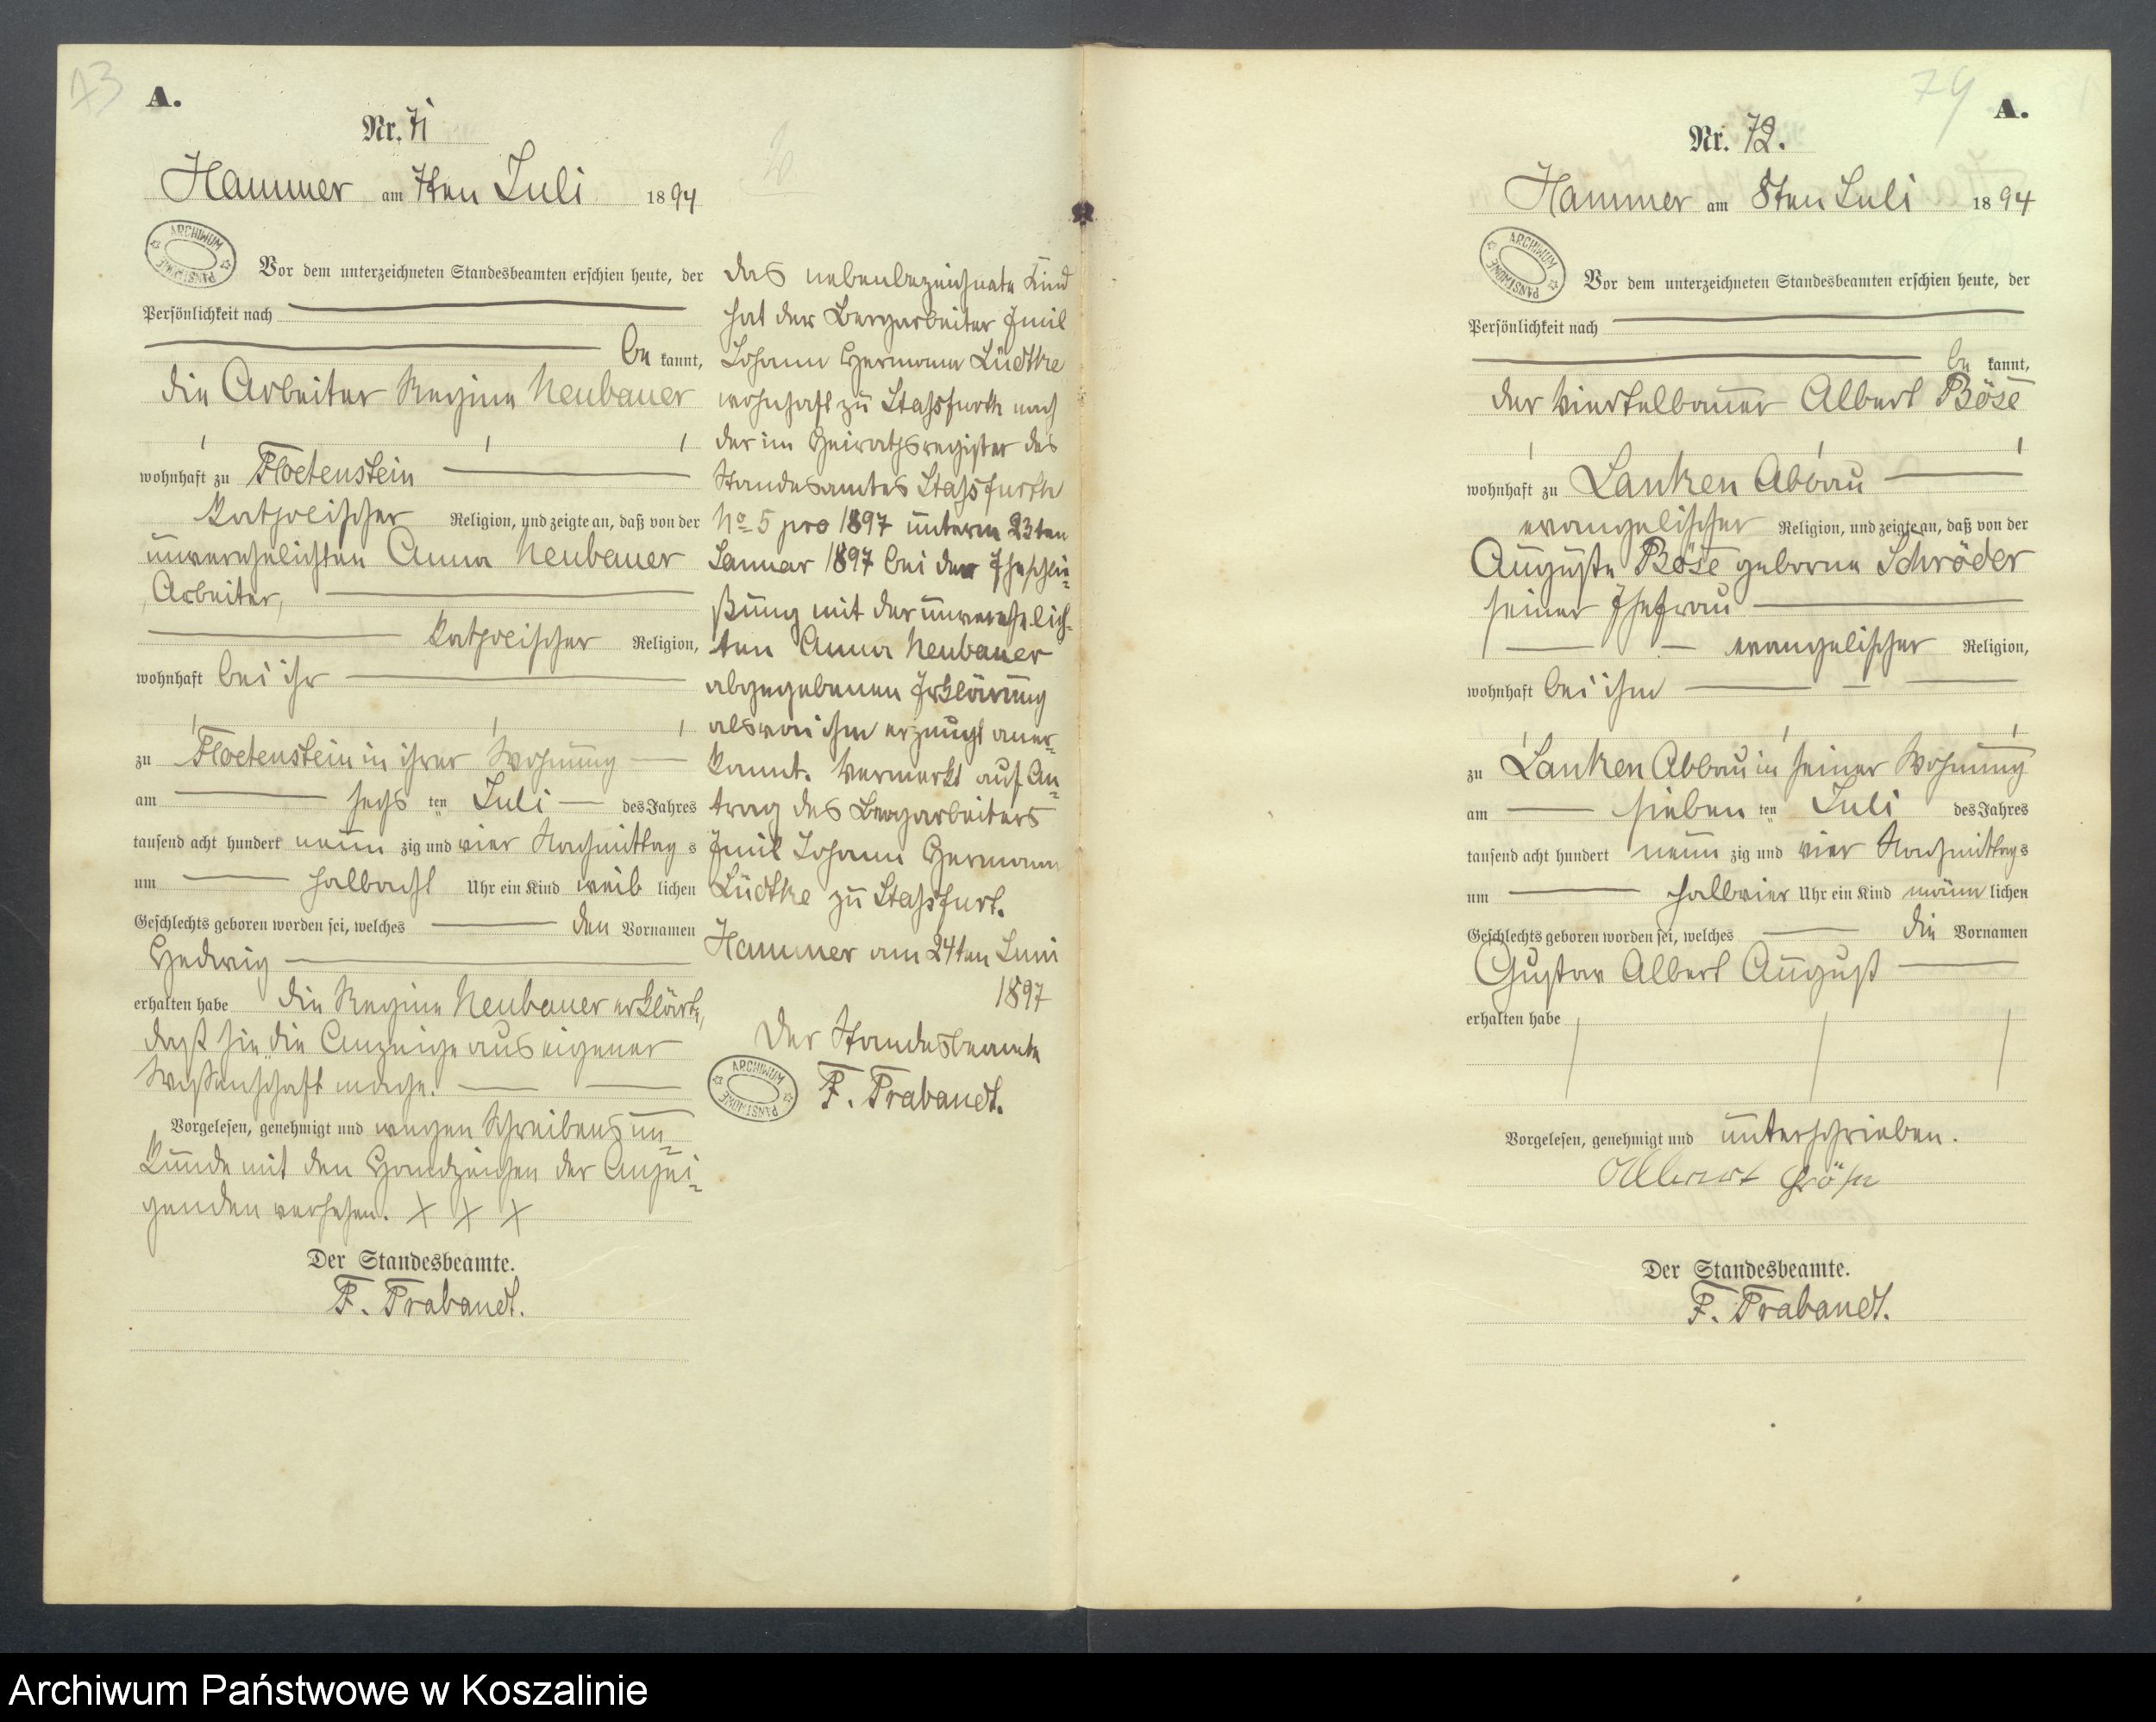 73
A.
Nr. 71
Hammer am 7ten Juli 1894
ARCHIWUM PAŃSTWOWE
Vor dem unterzeichneten Standesbeamten erschien heute, der
Persönlichkeit nach
be kannt,
die Arbeiter Regine Neubauer
wohnhaft zu Floetenstein
katholischer Religion, und zeigte an, daß von der
unverehelichten Anna Neubauer
Arbeiter,
katholischer Religion,
wohnhaft bei ihr
zu Floetenstein in ihrer Wohnung
am sechs ten Juli des Jahres
tausend acht hundert neun zig und vier Nachmittag s
um halbacht Uhr ein Kind weib lichen
Geschlechts geboren worden sei, welches den Vornamen
Hedwig
erhalten habe die Regine Neubauer erklärte,
daß sie die Anzeige aus eigener
Wissenschaft mache.
Vorgelesen, genehmigt und wegen Schreibens un=
kunde mit den Handzeichen der Anzei=
genden versehen. X X X
Der Standesbeamte.
F. Trabandt.
das nebenbezeichnete Kind
hat der Bergarbeiter Emil
Johann Hermann Lüdtke
wohnhaft zu Staßfurth nach
der im Heirathsregister des
Standesamtes Staßfurth
No 5 pro 1897 unterm 23ten
Januar 1897 bei der Eheschlie=
ßung mit der unverehelich=
ten Anna Neubauer
abgegebenen Erklärung
als von ihm erzeugt aner=
kannt. Vermerkt auf An=
trag des Bergarbeiters
Emil Johann Hermann
Lüdtke zu Staßfurt.
Hammer am 24ten Juni
1897
Der Standesbeamte
ARCHIWUM PAŃSTWOWE
F. Trabandt.
74
A.
Nr. 72.
Hammer am 8ten Juli 1894
ARCHIWUM PAŃSTWOWE
Vor dem unterzeichneten Standesbeamten erschien heute, der
Persönlichkeit nach
be kannt,
der Viertelbauer Albert Böse
wohnhaft zu Lanken Abbau
evangelischer Religion, und zeigte an, daß von der
Auguste Böse geborne Schröder
seiner Ehefrau
evangelischer Religion,
wohnhaft bei ihm
zu Lanken Abbau in seiner Wohnung
am sieben ten Juli des Jahres
tausend acht hundert neun zig und vier Nachmittag s
um halbvier Uhr ein Kind männ lichen
Geschlechts geboren worden sei, welches die Vornamen
Gustav Albert August
erhalten habe
Vorgelesen, genehmigt und unterschrieben.
Albert Böse
Der Standesbeamte.
F. Trabandt.
Archiwum Państwowe w Koszalinie